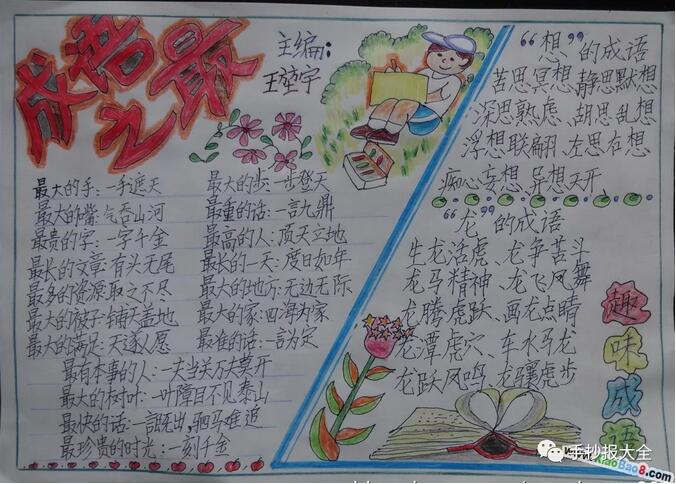 成语之最
主编:
最大的手:一手遮天
最大的嘴:气吞山河
最贵的字:一字千金
最长的文章:有头无尾
最多的资源:取之不尽
最大的被子:铺天盖地
最大的满足:天遂人愿
最大的步:一步登天
最重的话:一言九鼎
最高的人:顶天立地
最长的一天:度日如年
最大的地方:无边无际
最大的家:四海为家
最准的话:一言为定
最有本事的人:一夫当关万夫莫开
最大的树叶:一叶障目不见泰山
最快的话:一言既出,驷马难追
最珍贵的时光:一刻千金
“想”的成语
苦思冥想、静思默想
深思熟虑、胡思乱想
浮想联翩、左思右想
痴心妄想、异想天开
“龙”的成语
生龙活虎、龙争苦斗
龙马精神、龙飞凤舞
龙腾虎跃、画龙点睛
龙潭虎穴、车水马龙
龙跃凤鸣、龙骧虎步
趣味成语
手抄报大全